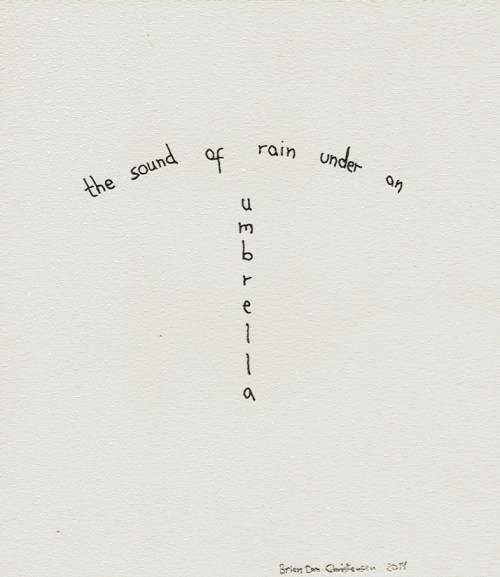 the sound of rain under an
umbrella
Brian Dan Christensen 2014